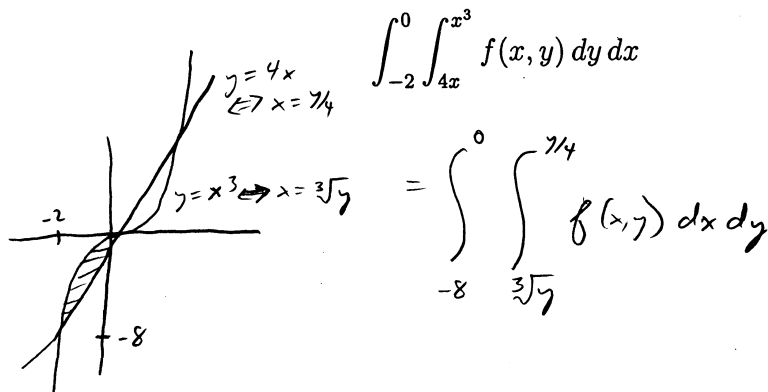 ∫_{-2}^{0} ∫_{4x}^{x³} f(x, y) dy dx
y = 4x
⟺ x = y/4
y = x³ ⟺ x = ∛y
-2
-8
= ∫_{-8}^{0} ∫_{∛y}^{y/4} f(x,y) dx dy